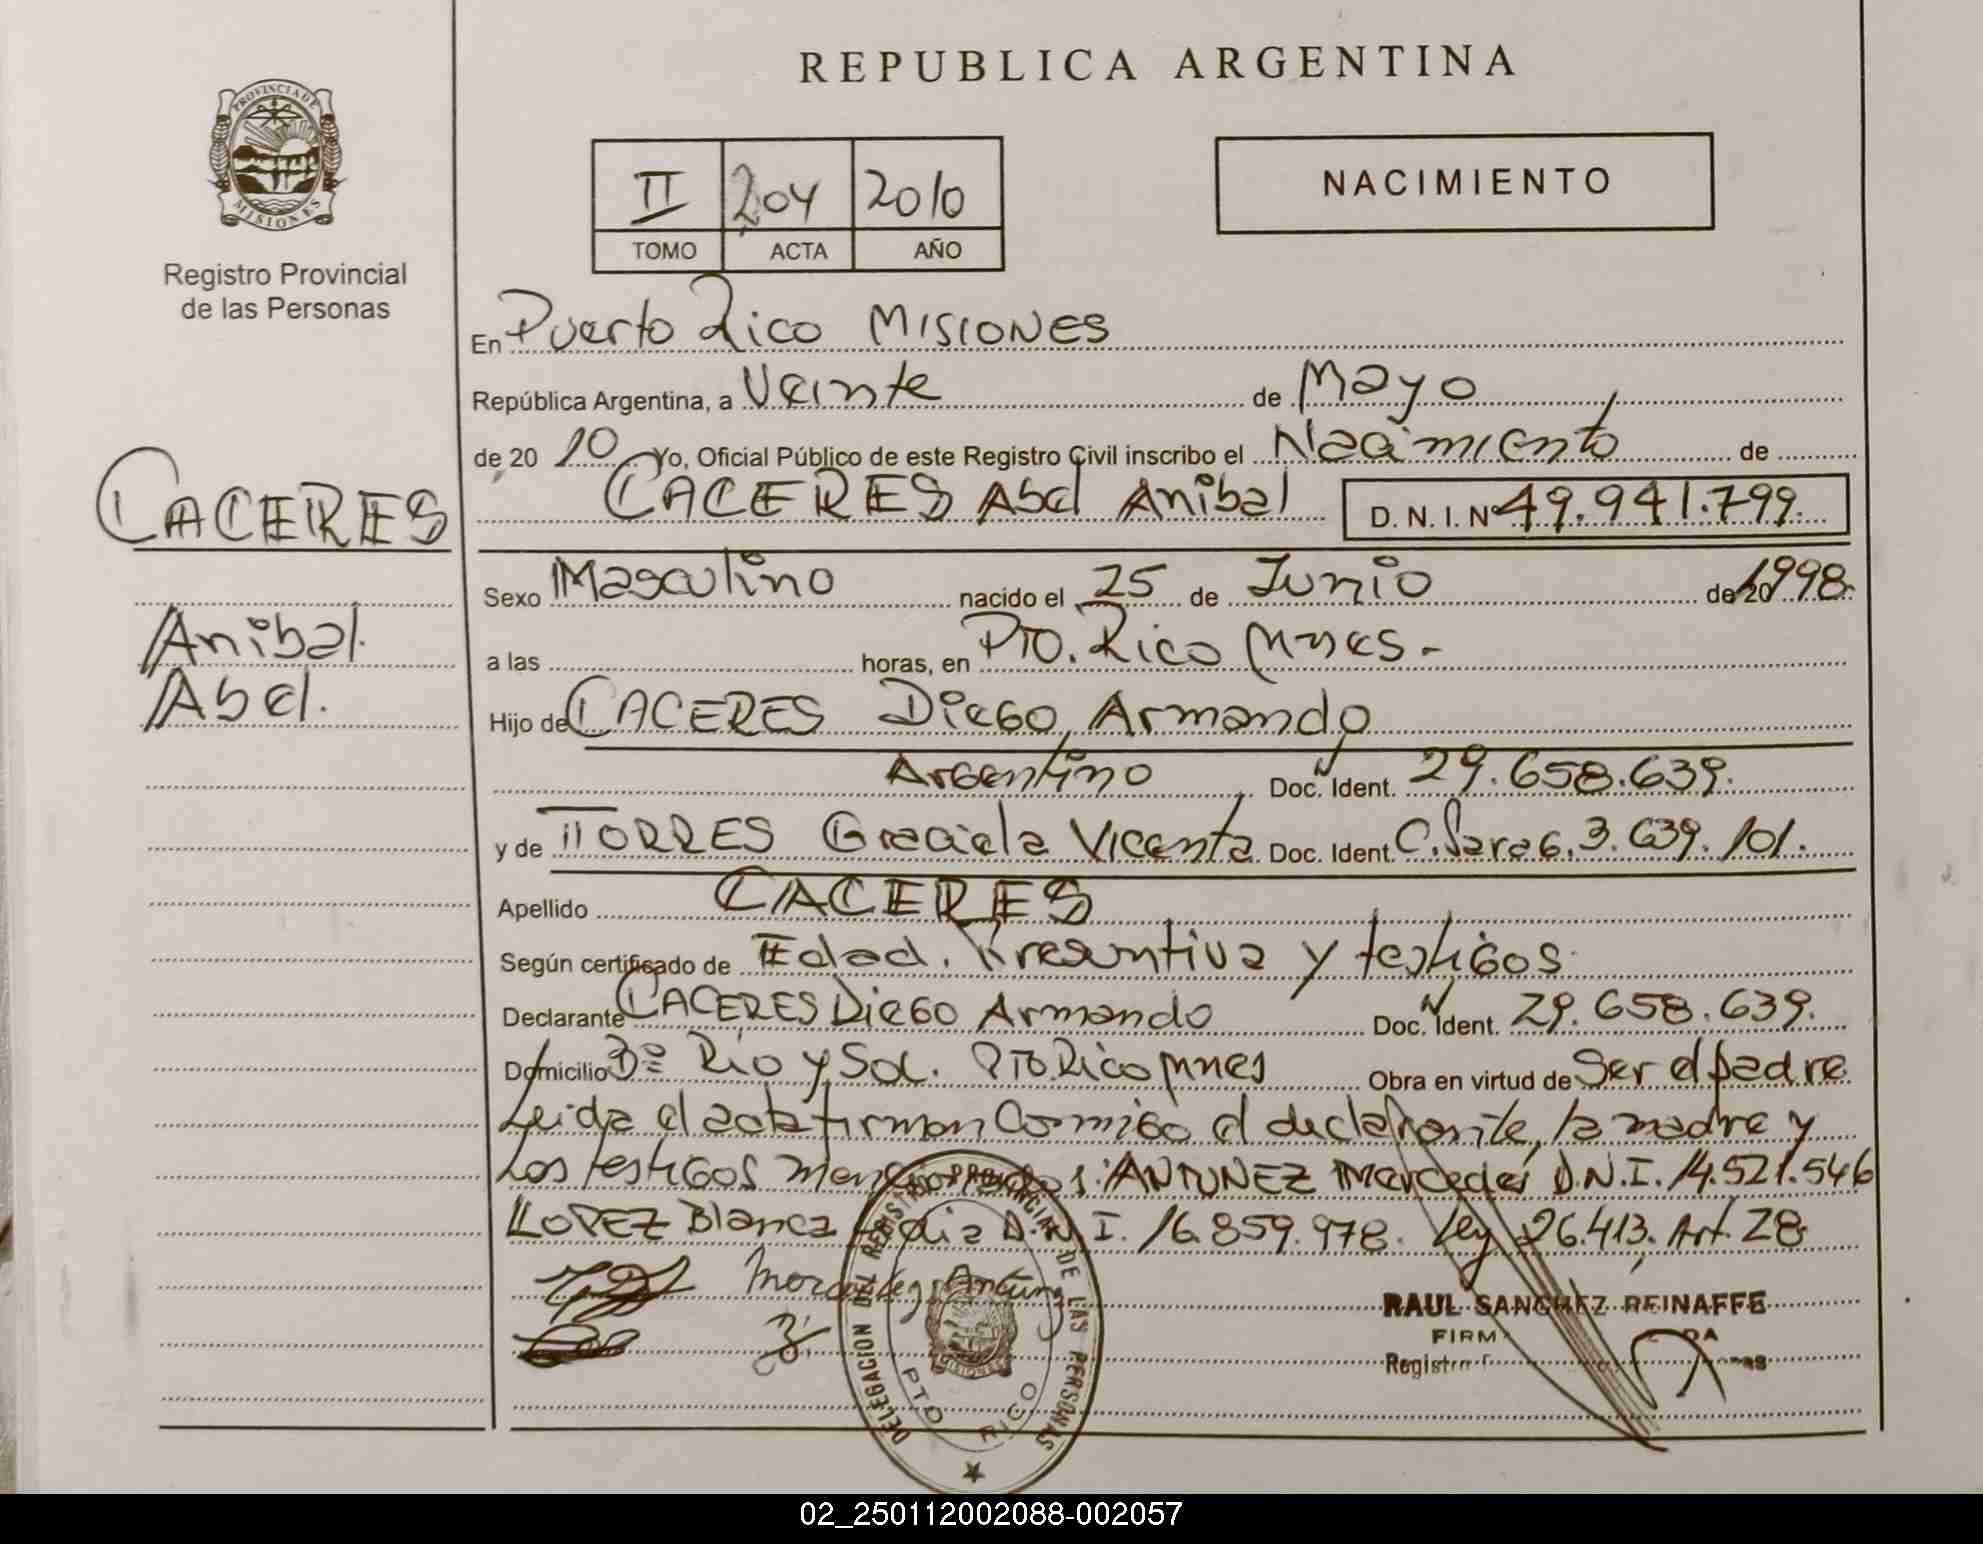 REPUBLICA ARGENTINA
PROVINCIA DE
MISIONES
Registro Provincial
de las Personas
II 204 2010
TOMO ACTA AÑO
NACIMIENTO
En Puerto Rico MISIONES
República Argentina, a Veinte de Mayo
de 20 10 Yo, Oficial Público de este Registro Civil inscribo el Nacimiento de
CACERES Abel Anibal D. N. I. Nº 49.941.799.
CACERES
Anibal.
Abel.
Sexo Masculino nacido el 25 de Junio de 20 1998.
a las horas, en Pto. Rico Mnes.-
Hijo de CACERES Diego Armando
Argentino Doc. Ident. 29.658.639.
y de TORRES Graciela Vicenta Doc. Ident. C. Parag. 3.639.101.
Apellido CACERES
Según certificado de Edad. Presuntiva y testigos.
Declarante CACERES Diego Armando Doc. Ident. 29.658.639.
Domicilio Bº Rio y Sol. Pto. Rico Mnes Obra en virtud de Ser el padre
Leida el acta firman Conmigo el declarante, la madre y
Los testigos mencionados: ANTUNEZ Mercedes D.N.I. 14.521.546
LOPEZ Blanca D.N.I. 16.859.978. Ley 26.413. Art. 28
DELEGACION DEL REGISTRO PROVINCIAL DE LAS PERSONAS
PTO RICO
RAUL SANCHEZ REINAFFE
02_250112002088-002057